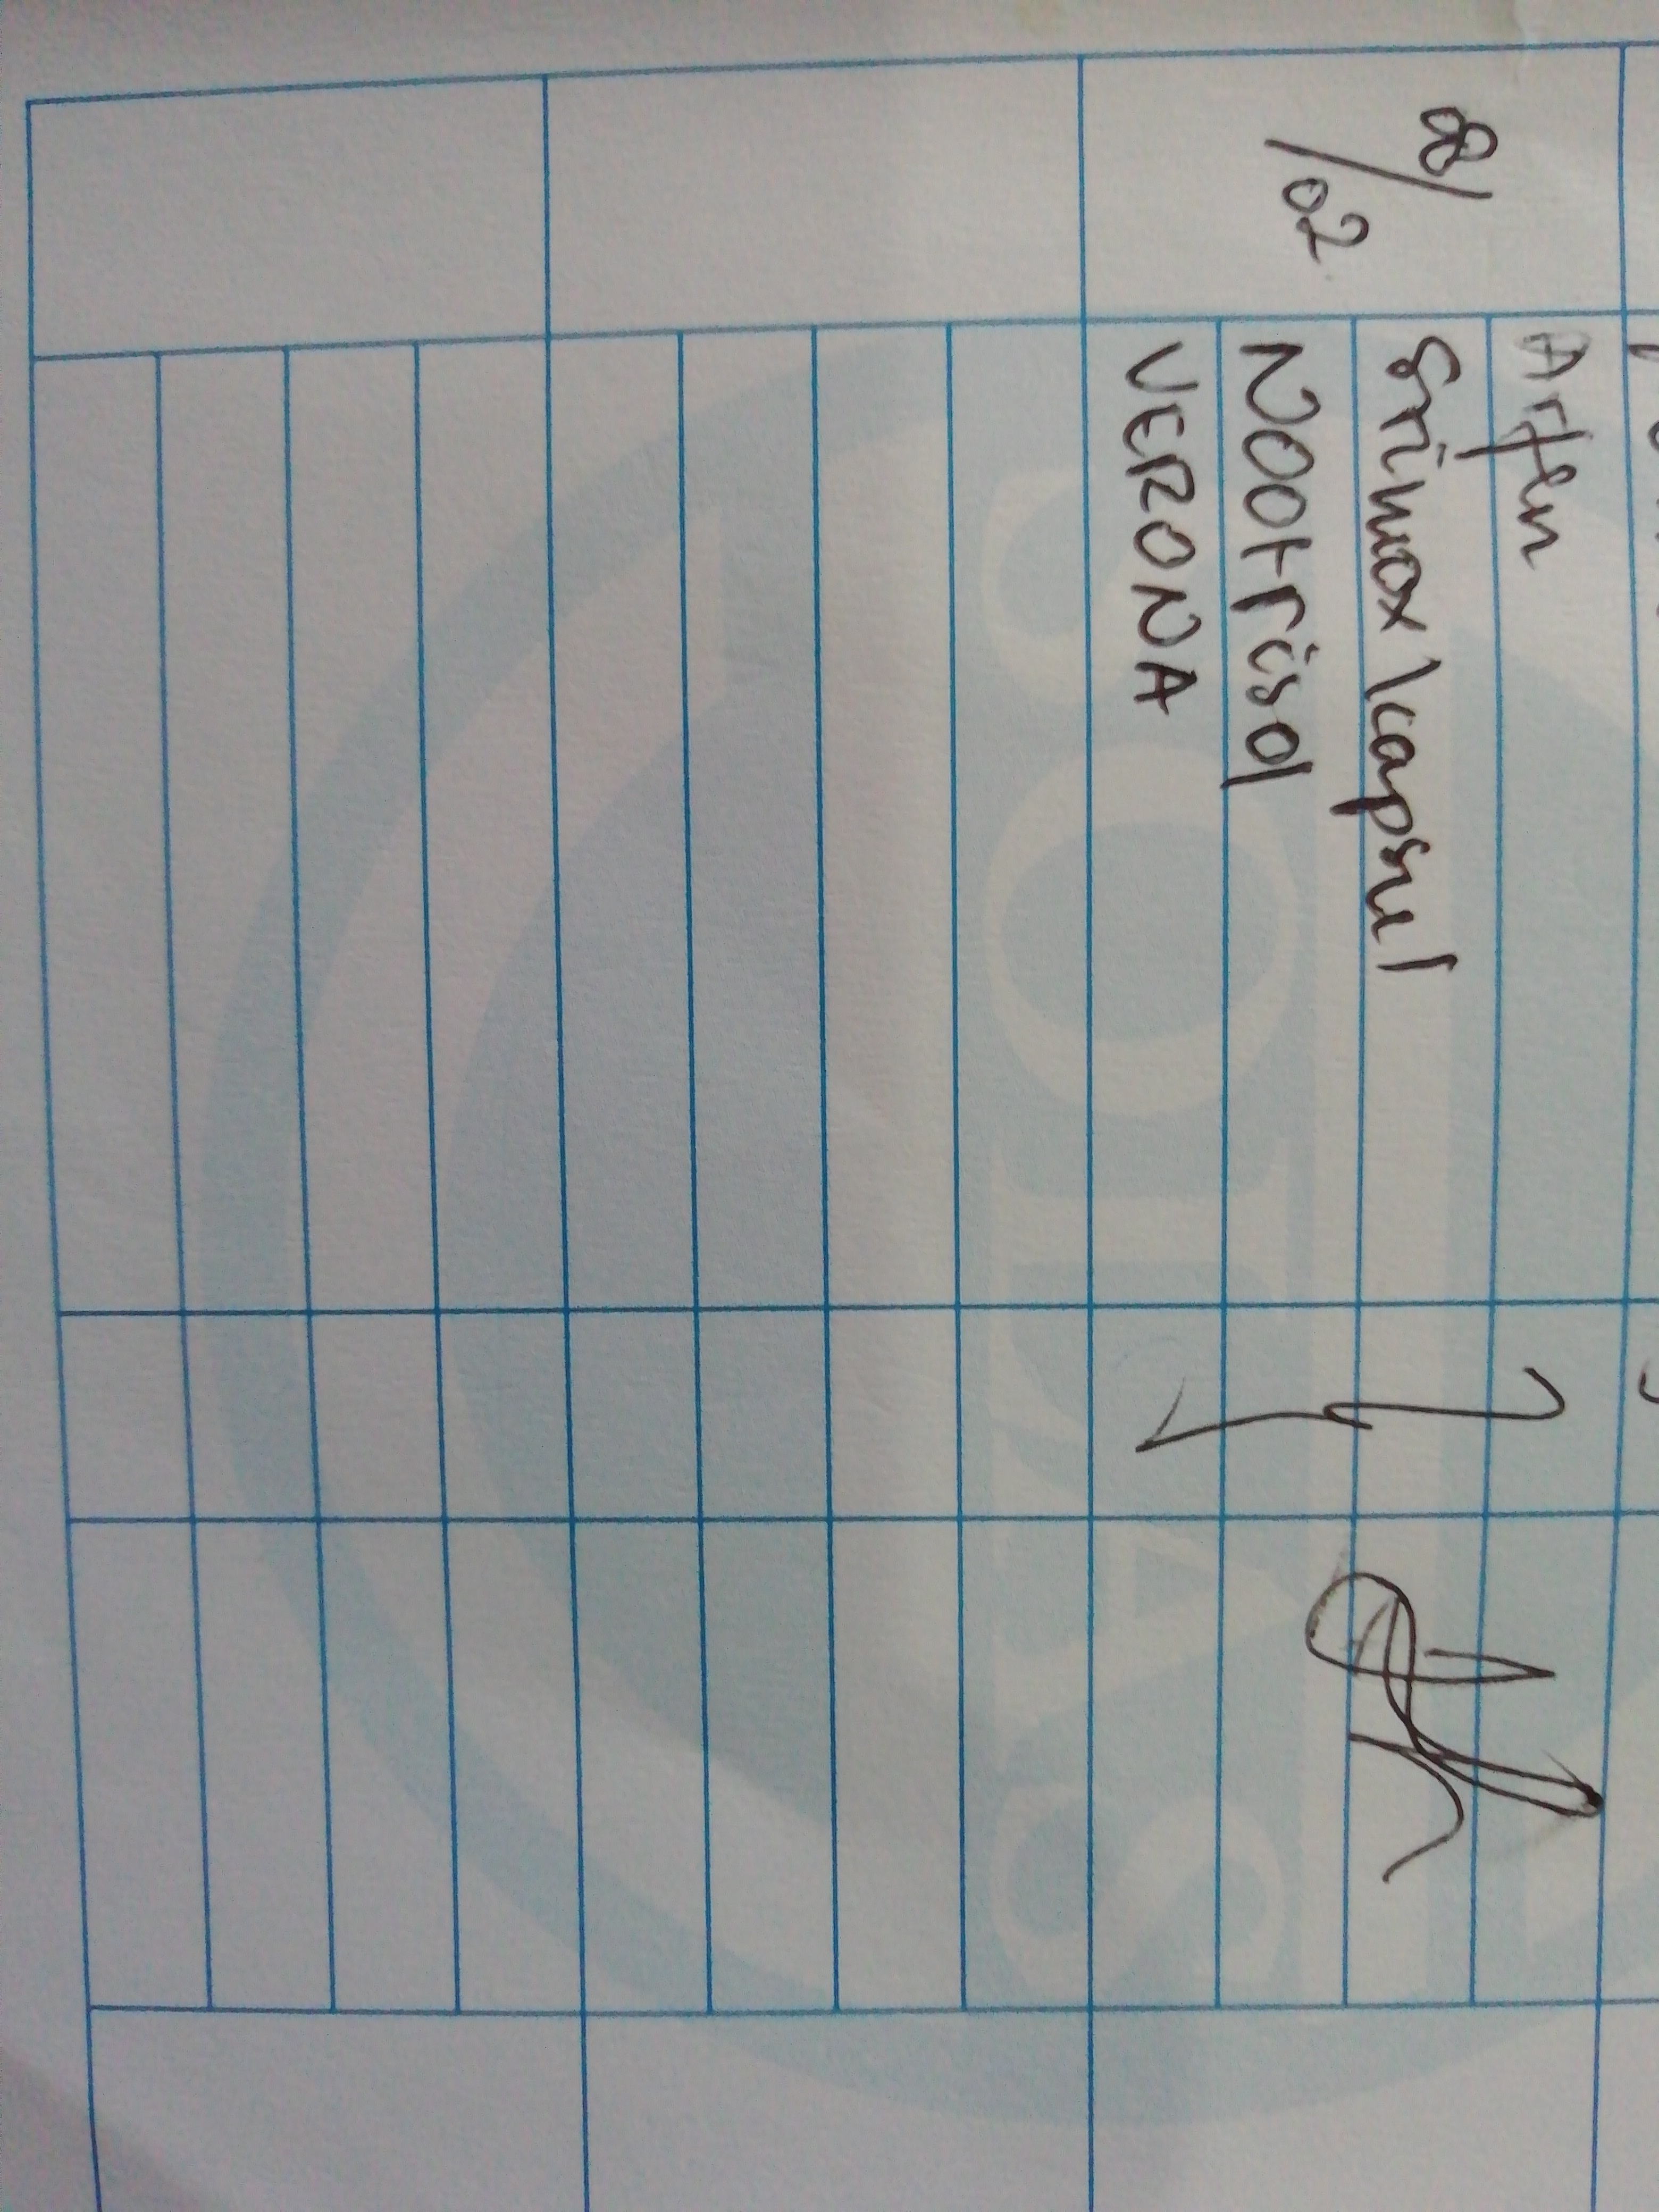 08/02
Arten
Srimox kapsul
Nootrisol
VERONA